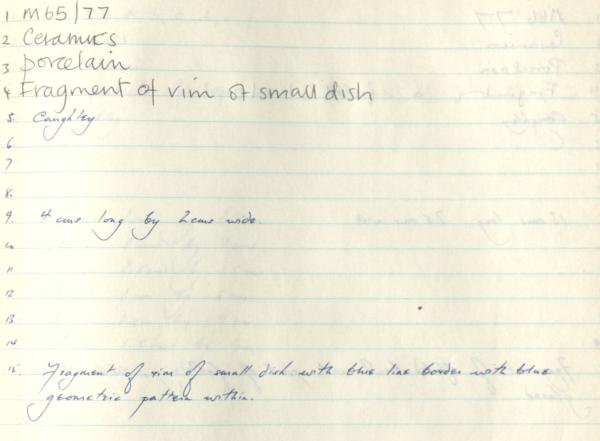 1 M65/77
2 Ceramics
3 porcelain
4 Fragment of rim of small dish
5. Caughley
6
7
8.
9. 4 cms long by 2 cms wide.
10.
11
12
13.
14
15. Fragment of rim of small dish with blue line border with blue
geometric pattern within.